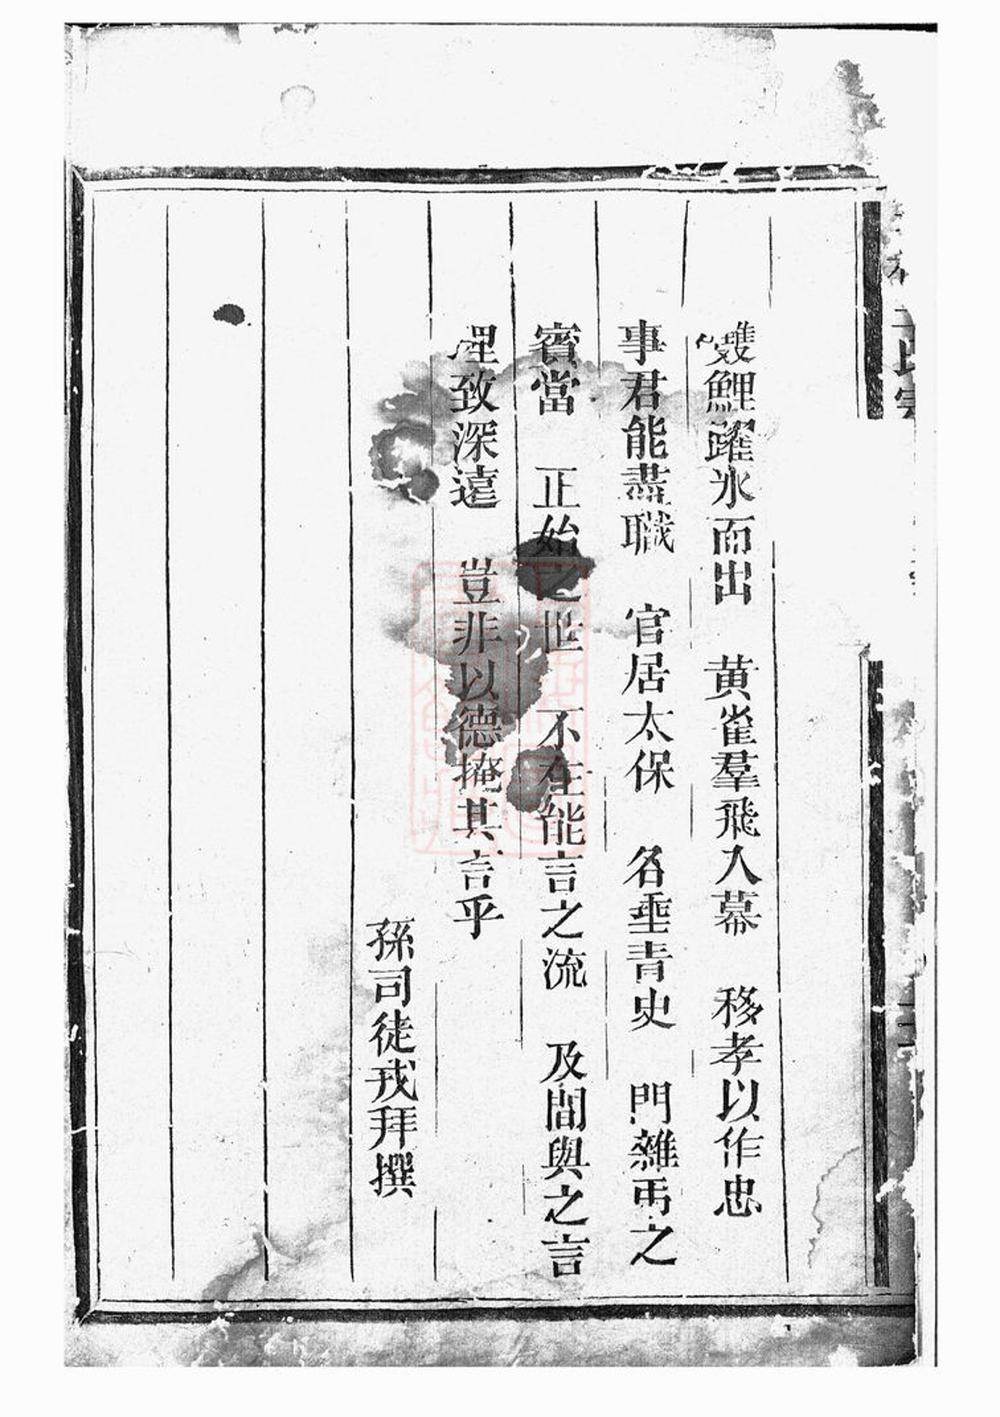 雙鯉躍氷而出　黄雀羣飛入幕　移孝以作忠
事君能盡職　官居太保　名垂青史　門雜弔之
賓當　正始之世　不在能言之流　及間與之言
理致深遠　豈非以德掩其言乎
孫司徒戎拜撰